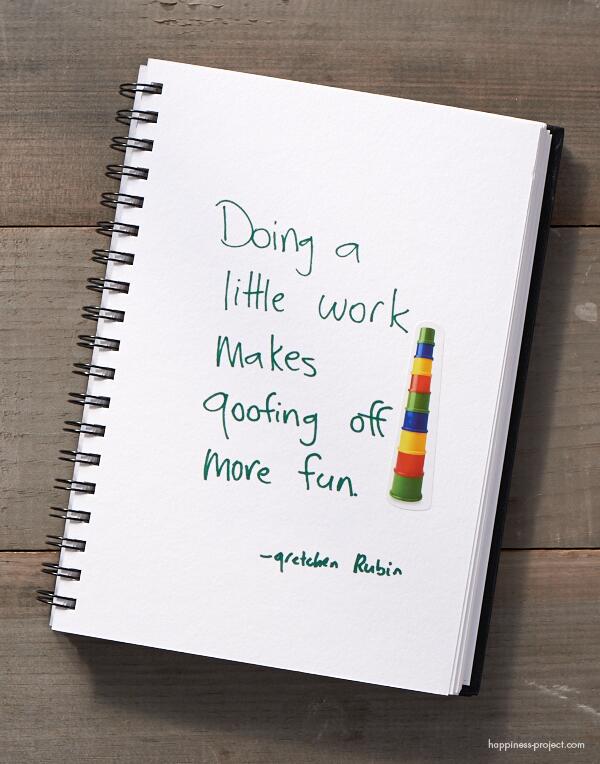 Doing a
little work
makes
goofing off
more fun.
-gretchen Rubin
happiness-project.com